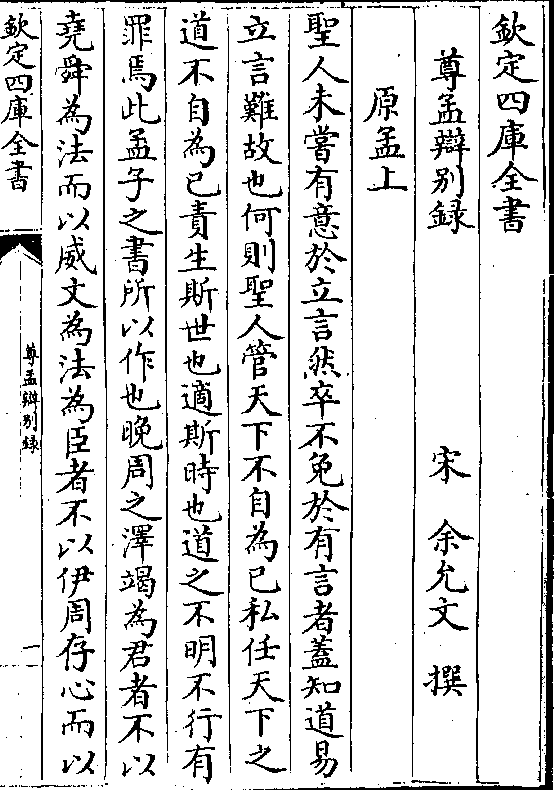 欽定四庫全書
尊孟辯別録
宋 余允文 撰
原孟上
聖人未嘗有意於立言然卒不免於有言者蓋知道易
立言難故也何則聖人管天下不自為已私任天下之
道不自為已責生斯世也適斯時也道之不明不行有
罪焉此孟子之書所以作也晚周之澤竭為君者不以
堯舜為法而以威文為法為臣者不以伊周存心而以
欽定四庫全書
尊孟辯別録
一